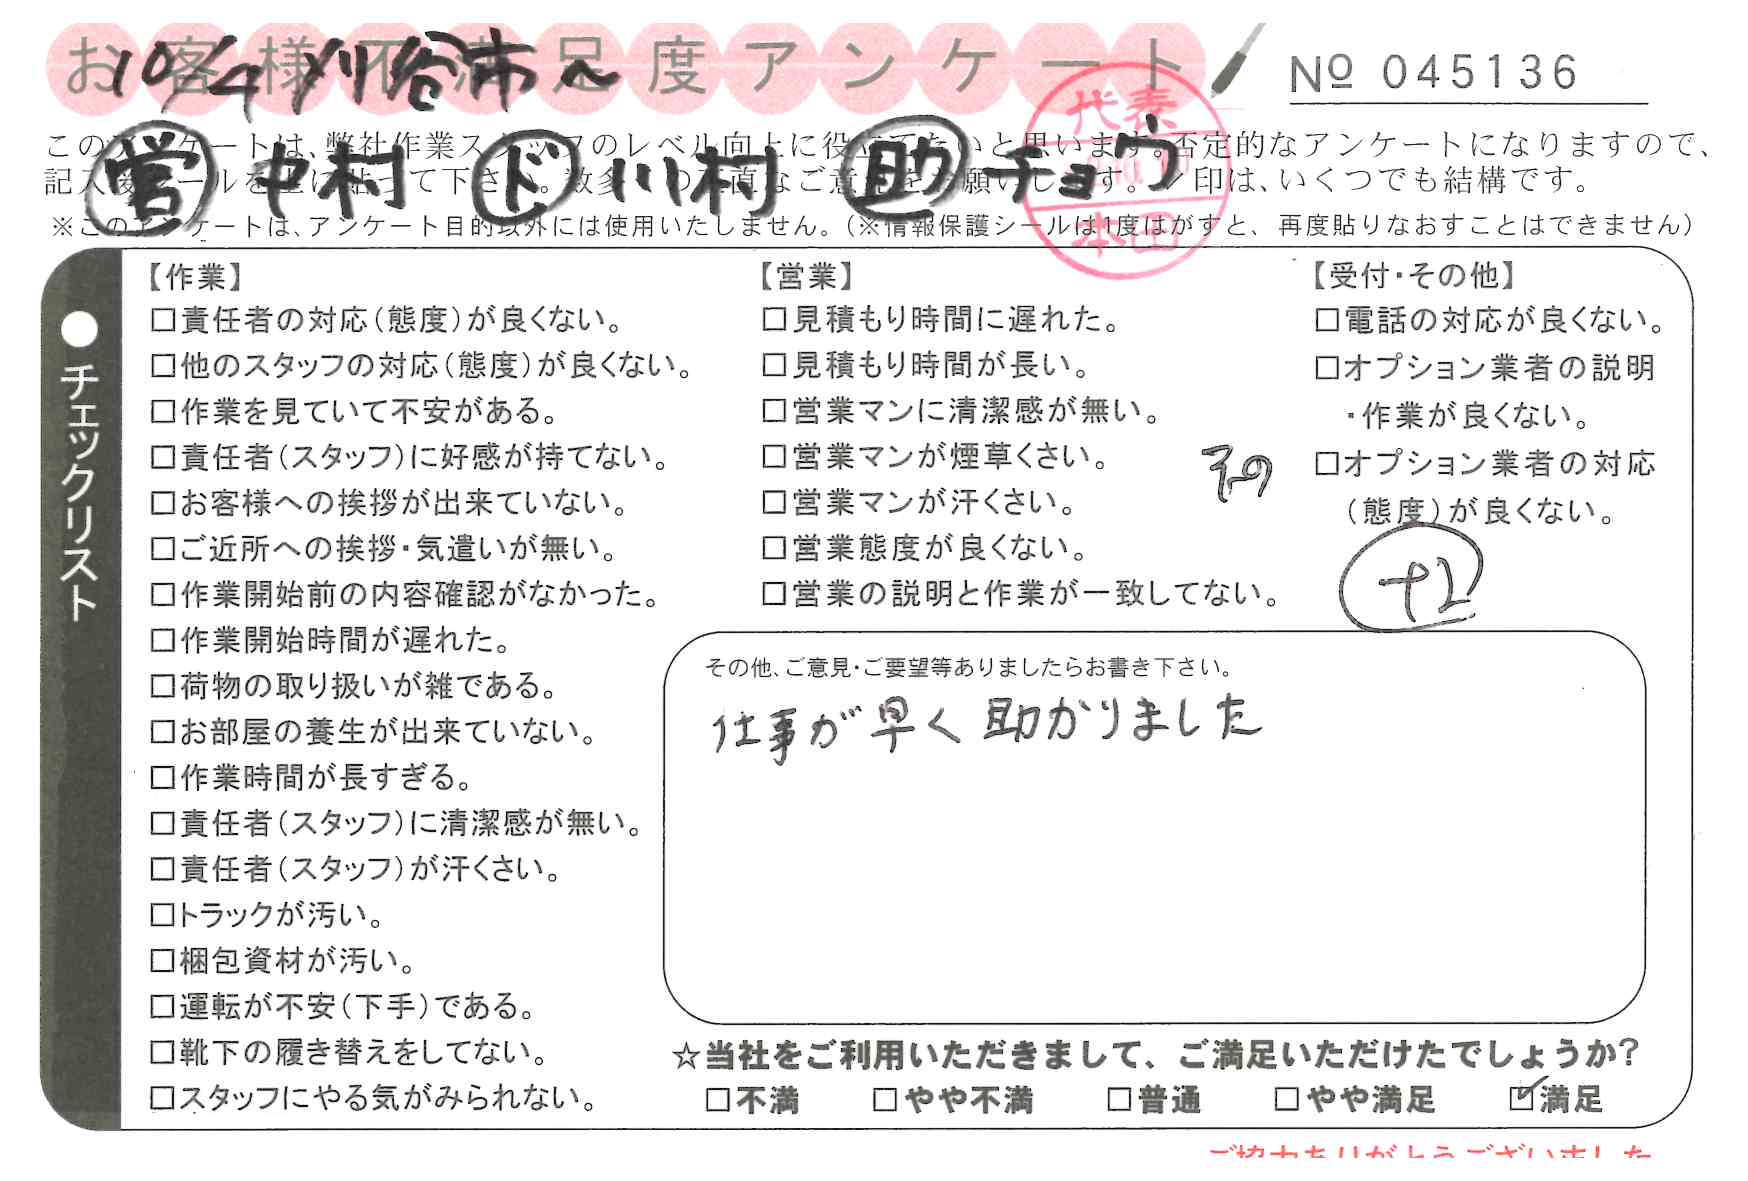 お客様不満足度アンケート
10/4 刈谷市〜
№ 045136
このアンケートは、弊社作業スタッフのレベル向上に役立てたいと思います。否定的なアンケートになりますので、
記入後シールを上に貼って下さい。数多くの正直なご意見をお願いします。✓印は、いくつでも結構です。
営 中村 ド 川村 助 チョウ
※このアンケートは、アンケート目的以外には使用いたしません。(※情報保護シールは1度はがすと、再度貼りなおすことはできません)
代表
本田
●チェックリスト
【作業】
□責任者の対応(態度)が良くない。
□他のスタッフの対応(態度)が良くない。
□作業を見ていて不安がある。
□責任者(スタッフ)に好感が持てない。
□お客様への挨拶が出来ていない。
□ご近所への挨拶・気遣いが無い。
□作業開始前の内容確認がなかった。
□作業開始時間が遅れた。
□荷物の取り扱いが雑である。
□お部屋の養生が出来ていない。
□作業時間が長すぎる。
□責任者(スタッフ)に清潔感が無い。
□責任者(スタッフ)が汗くさい。
□トラックが汚い。
□梱包資材が汚い。
□運転が不安(下手)である。
□靴下の履き替えをしてない。
□スタッフにやる気がみられない。
【営業】
□見積もり時間に遅れた。
□見積もり時間が長い。
□営業マンに清潔感が無い。
□営業マンが煙草くさい。
□営業マンが汗くさい。
□営業態度が良くない。
□営業の説明と作業が一致してない。
【受付・その他】
□電話の対応が良くない。
□オプション業者の説明
・作業が良くない。
□オプション業者の対応
(態度)が良くない。
+2
その他、ご意見・ご要望等ありましたらお書き下さい。
仕事が早く助かりました
☆当社をご利用いただきまして、ご満足いただけたでしょうか?
□不満 □やや不満 □普通 □やや満足 ☑満足
ご協力ありがとうございました